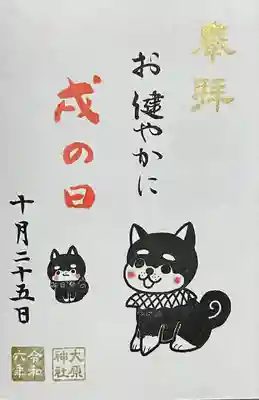 奉拝
お健やかに
戌の日
十月二十五日
大原神社
令和六年